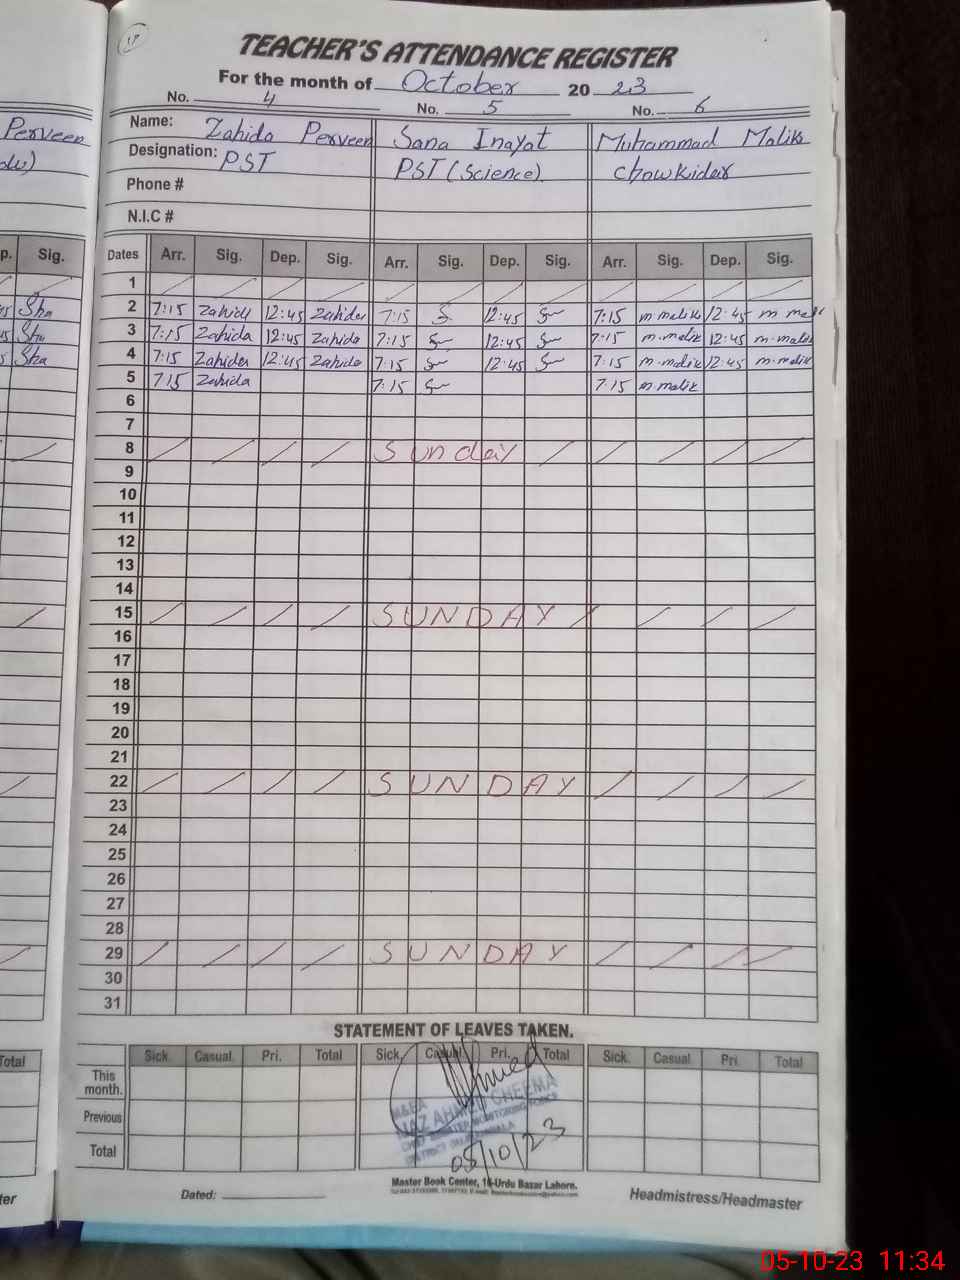 TEACHER'S ATTENDANCE REGISTER
For the month of October 2023
No. 4 No. 5 No. 6
Perveen Name: Zahida Perveen Sana Inayat Muhammad Malik
Designation: PST PST (Science) Chowkidar
Phone #
N.I.C #
p. Sig. Dates Arr. Sig. Dep. Sig. Arr. Sig. Dep. Sig. Arr. Sig. Dep. Sig.
1
Sha 2 7:15 Zahida 12:45 Zahida 7:15 12:45 7:15 m malik 12:45 m malik
Sha 3 7:15 Zahida 12:45 Zahida 7:15 12:45 7:15 m.malik 12:45 m.malik
Sha 4 7:15 Zahida 12:45 Zahida 7:15 12:45 7:15 m.malik 12:45 m.malik
5 7:15 Zahida 7:15 7:15 m.malik
6
7
8 Sunday
9
10
11
12
13
14
15 SUNDAY
16
17
18
19
20
21
22 SUNDAY
23
24
25
26
27
28
29 SUNDAY
30
31
STATEMENT OF LEAVES TAKEN.
Total Sick. Casual. Pri. Total Sick. Casual. Pri. Total Sick. Casual. Pri. Total
This month.
Previous
Total
M&EA
AHMED CHEEMA
05/10/23
Master Book Center, 16-Urdu Bazar Lahore.
Dated: Headmistress/Headmaster
05-10-23 11:34